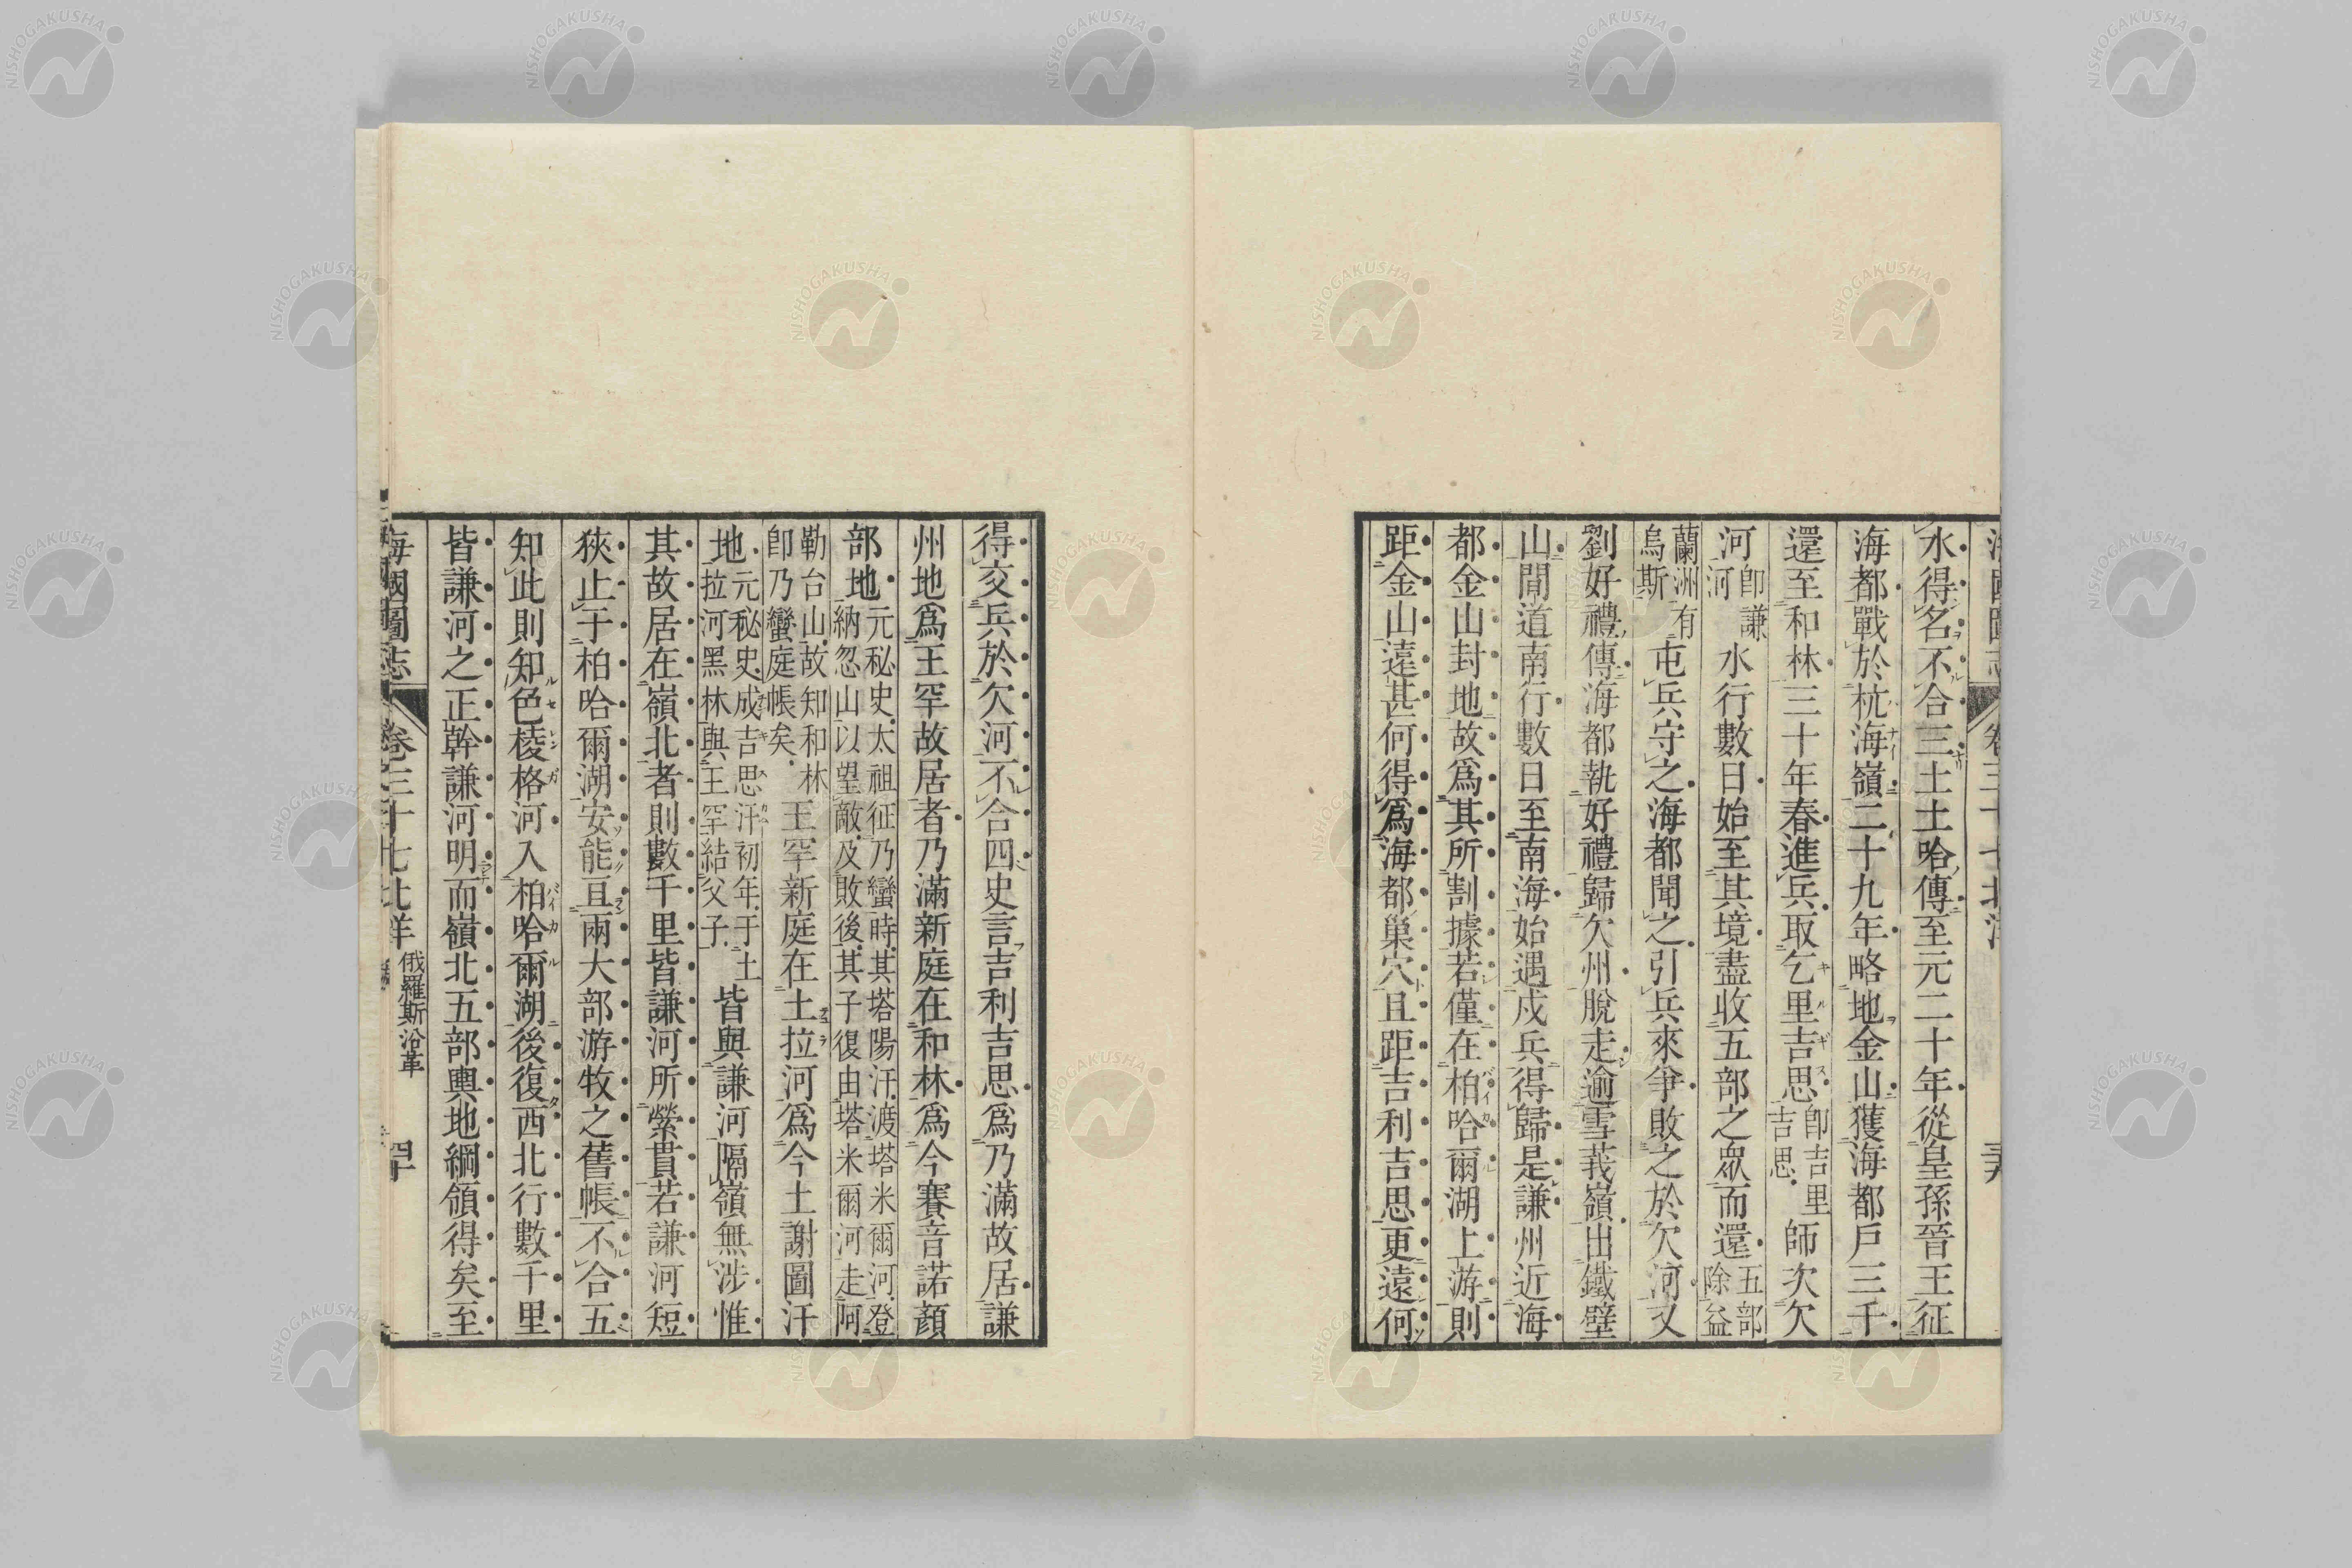 水得名不合三土土哈傳至元二十年從皇孫晉王征
海都戰於杭海嶺二十九年略地金山獲海都戶三千
還至和林三十年春進兵取乞里吉思即吉里吉思師次欠
河即謙河水行數日始至其境盡收五部之眾而還五部除益
蘭洲有烏斯屯兵守之海都聞之引兵來爭敗之於欠河又
劉好禮傳海都執好禮歸欠州脫走逾雪莪嶺出鐵壁
山閒道南行數日至南海始遇戍兵得歸是謙州近海
都金山封地故爲其所割據若僅在柏哈爾湖上游則
距金山遠甚何得爲海都巢穴且距吉利吉思更遠何
得交兵於欠河不合四史言吉利吉思爲乃滿故居謙
州地爲王罕故居者乃滿新庭在和林爲今賽音諾顏
部地元秘史太祖征乃蠻時其塔陽汗渡塔米爾河登納忽山以望敵及敗後其子復由塔米爾河走阿
勒台山故知和林卽乃蠻庭帳矣王罕新庭在土拉河爲今土謝圖汗
地元秘史成吉思汗初年于土拉河黑林與王罕結父子皆與謙河隔嶺無涉惟
其故居在嶺北者則數千里皆謙河所縈貫若謙河短
狹止于柏哈爾湖安能亘兩大部游牧之舊帳不合五
知此則知色棱格河入柏哈爾湖後復西北行數千里
皆謙河之正幹謙河明而嶺北五部輿地綱領得矣至
海國圖志 卷三十七北洋 俄羅斯沿革 四十
NISHOGAKUSHA